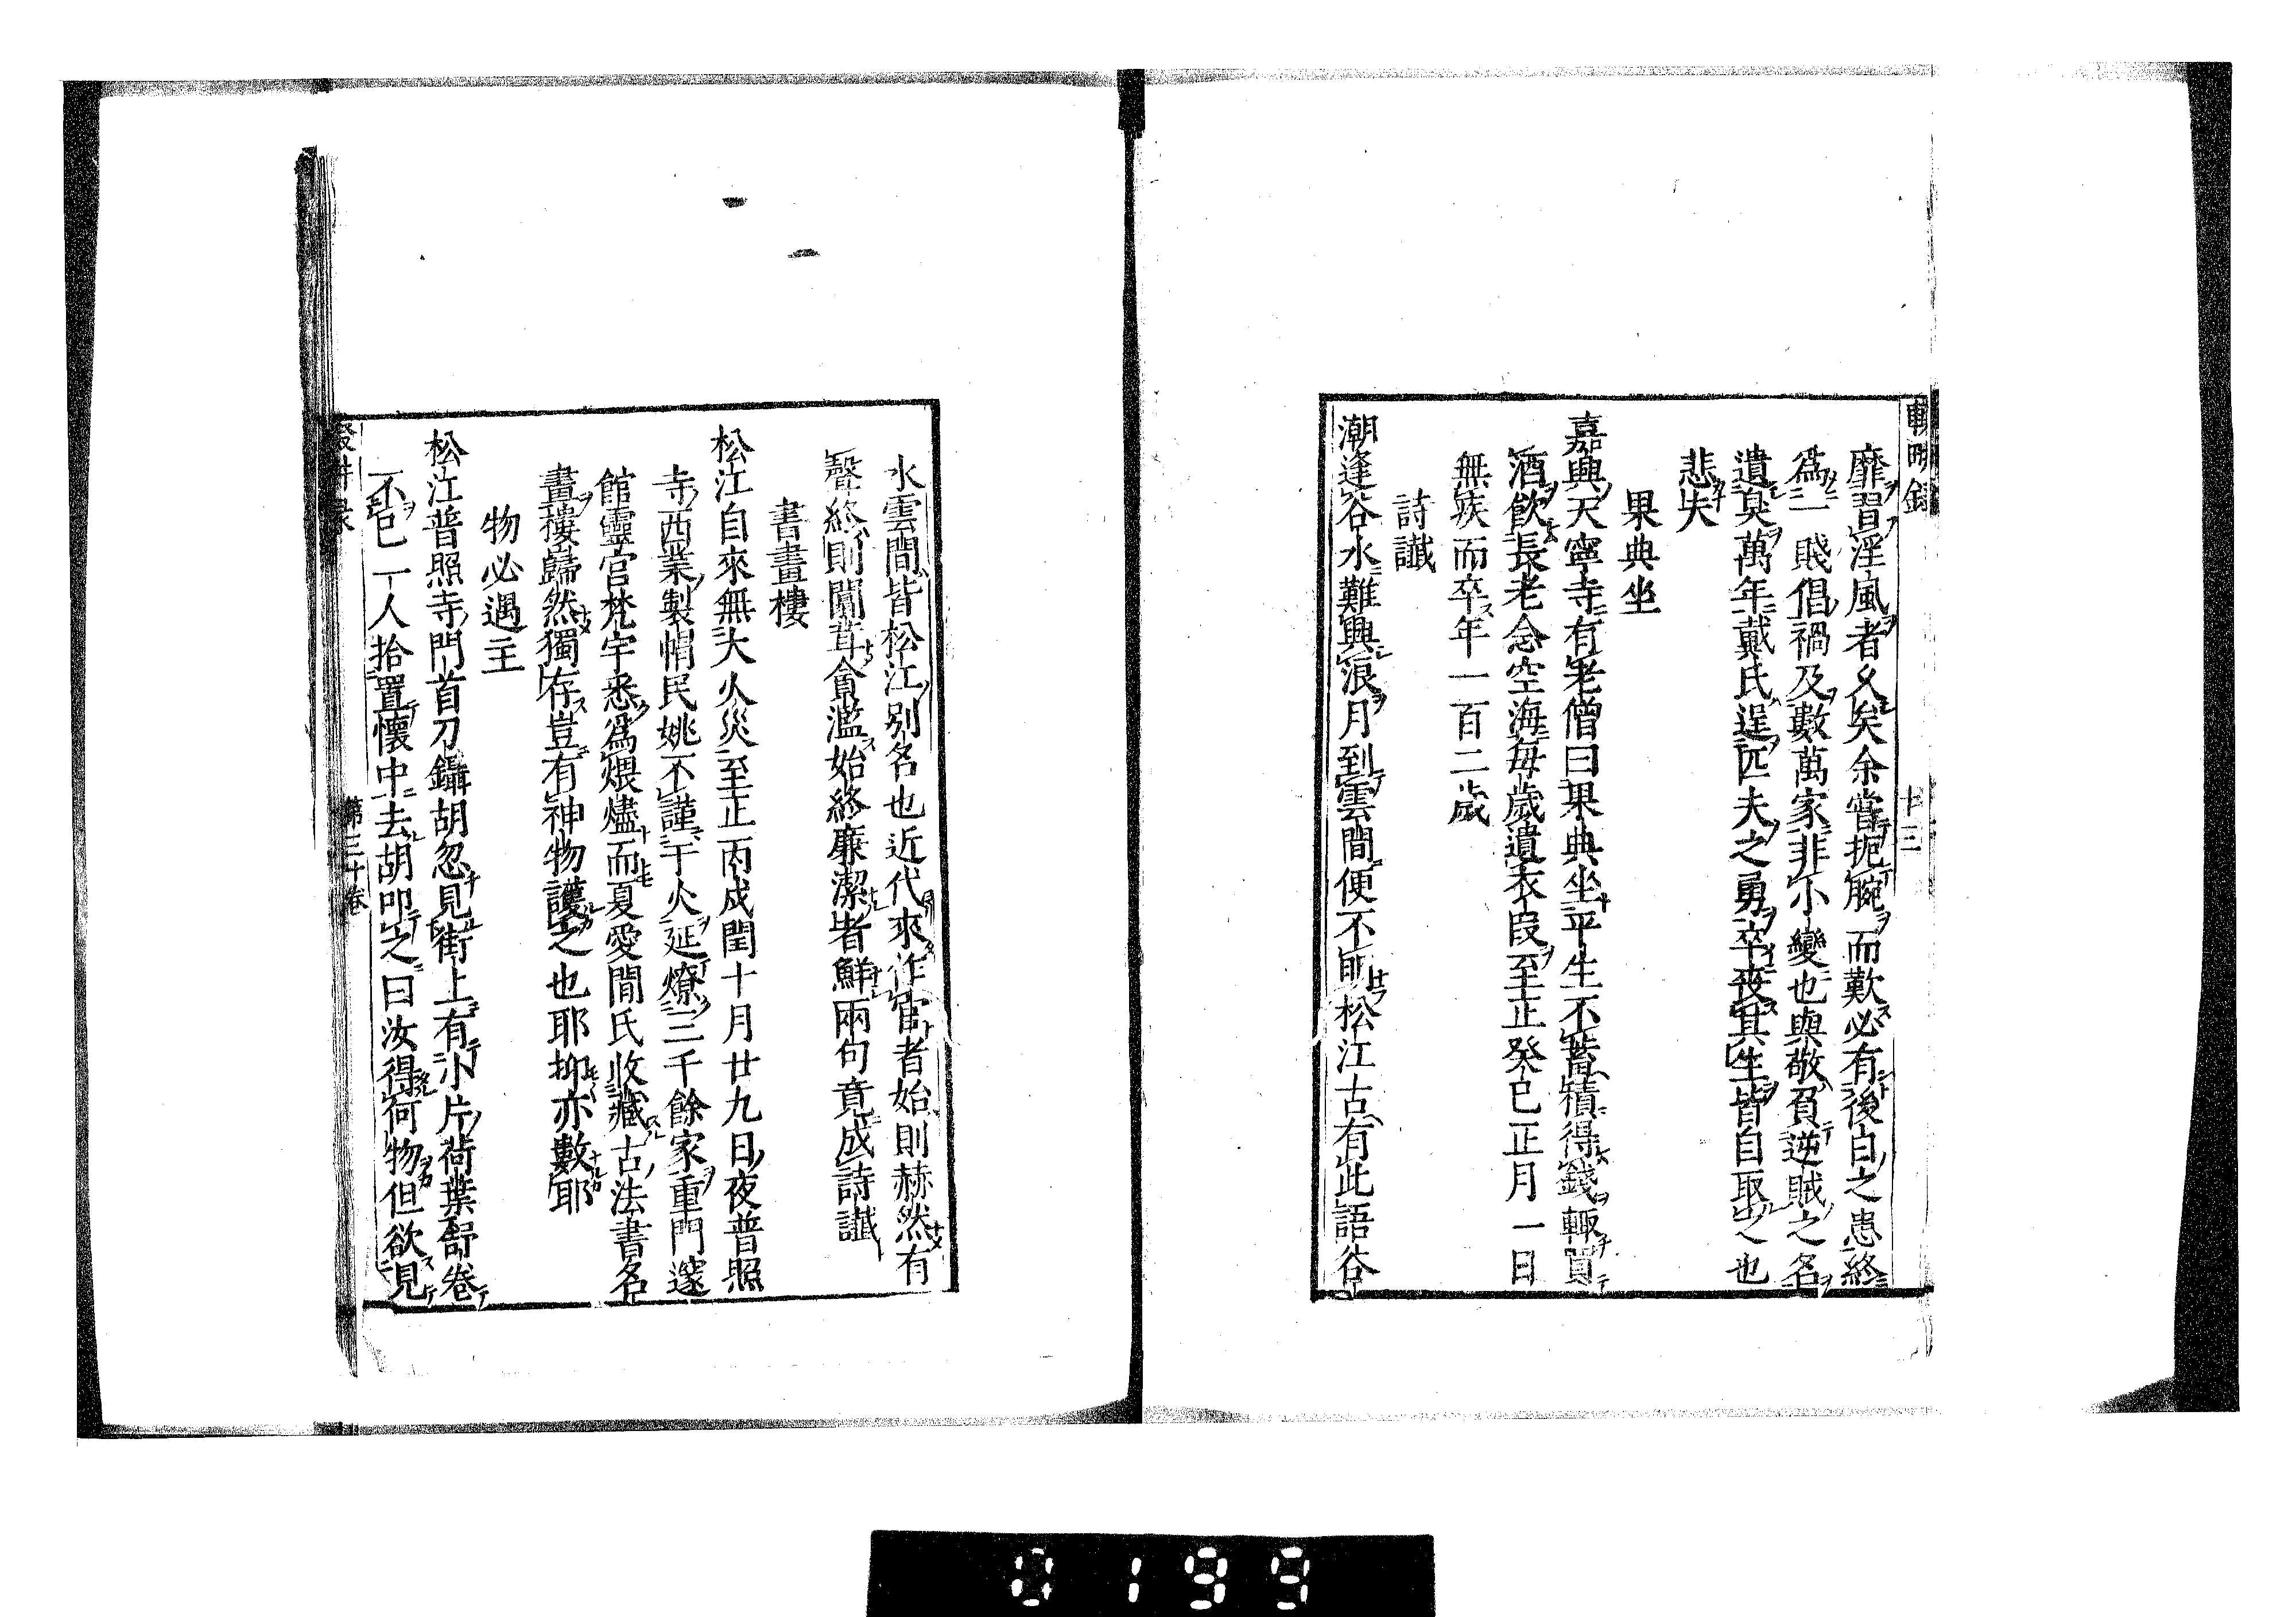 輟畊録
十三
靡習淫風者久矣余嘗扼腕而歎必有後日之患終
爲一賤倡禍及數萬家非小變也與敬負逆賊之名
遺臭萬年戴氏逞匹夫之勇卒喪其生皆自取之也
悲夫
果典坐
嘉興天寧寺有老僧曰果典坐平生不蓄積得錢輙買
酒飮長老念空海每歲遺衣段至正癸巳正月一日
無疾而卒年一百二歲
詩讖
潮逢谷水難興浪月到雲間便不明松江古有此語谷
水雲間皆松江別名也近代來作官者始則赫然有
聲終則闒茸貪濫始終廉潔者鮮兩句竟成詩讖
書畫樓
松江自來無大火災至正丙戌閏十月廿九日夜普照
寺西業製帽民姚不謹于火延燎三千餘家重門邃
館靈官梵宇悉爲煨燼而夏愛閒氏收藏古法書名
畫樓巋然獨存豈有神物護之也耶抑亦數耶
物必遇主
松江普照寺門首刀鑷胡忽見街上有小片荷葉舒卷
不已一人拾置懷中去胡叩之曰汝得何物但欲見
第三十卷